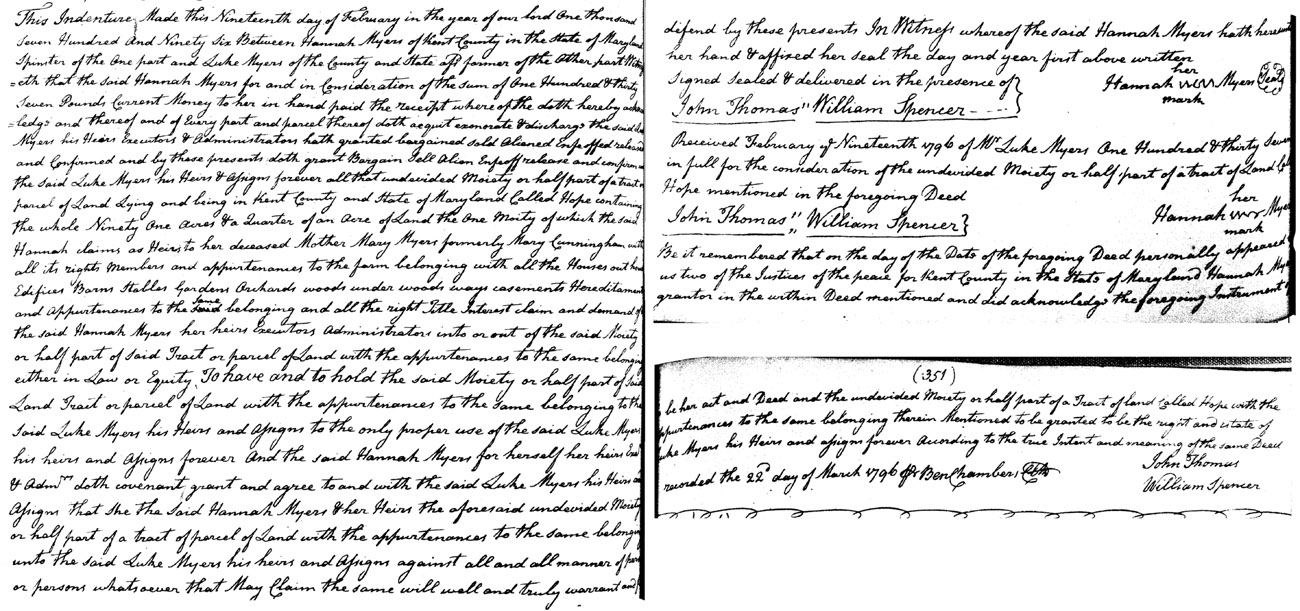 This Indenture Made this Nineteenth day of February in the year of our lord One thousand
Seven Hundred And Ninety Six Between Hannah Myers of Kent County in the State of Maryland
Spinster of the One part and Luke Myers of the County and State afs former of the Other part Witness
=eth that the said Hannah Myers for and in Consideration of the sum of One Hundred & thirty
Seven Pounds Current Money to her in hand paid the receipt where of the doth hereby acknow
=ledge and thereof and of Every part and parcel thereof doth acquit exonorate & discharge the said Luke
Myers his Heirs Executors & Administrators hath granted bargained sold Aliened Enfeoffed released
and Confirmed and by these presents doth grant Bargain Sell Alien Enfeoff release and confirm
the said Luke Myers his Heirs & Assigns forever all that undevided Moiety or half part of a tract or
parcel of Land Lying and being in Kent County and State of Maryland Called Hope containing
the whole Ninety One Acres & a Quarter of an Acre of Land the One Moity of which the said
Hannah claims as Heirs to her deceased Mother Mary Myers formerly Mary Cunningham with
all its rights Members and appurtenances to the farm belonging with all the Houses out houses
Edifices Barns Stables Gardens Orchards woods under woods ways easements Hereditaments
and Appurtenances to the same belonging and all the right Title Interest claim and demand of
the said Hannah Myers her heirs Executors Administrators into or out of the said Moiety
or half part of said Tract or parcel of Land with the appurtenances to the same belonging
either in Law or Equity To have and to hold the said Moiety or half part of said
Land Tract or parcel of Land with the appurtenances to the same belonging to the
Said Luke Myers his Heirs and Assigns to the only proper use of the said Luke Myers
his heirs and Assigns forever And the said Hannah Myers for herself her heirs Exrs
& Admrs doth covenant grant and agree to and with the said Luke Myers his Heirs and
Assigns that she the Said Hannah Myers & her Heirs the aforesaid undevided Moiety
or half part of a tract of parcel of Land with the appurtenances to the same belonging
unto the said Luke Myers his heirs and Assigns against all and all manner of person
or persons whatsoever that May Claim the same will well and truly warrant and
difend by these presents In Witness whereof the said Hannah Myers hath hereunto
her hand & affixed her seal the day and year first above written
Signed Sealed & delivered in the presence of
her
Hannah Myers Seal
mark
John Thomas" William Spencer
Received February ye Nineteenth 1796 of Mr Luke Myers One Hundred & thirty Seven
in full for the consideration of the undivided Moiety or half part of a tract of Land
Hope mentioned in the foregoing Deed
her
John Thomas" William Spencer
Hannah Myers
mark
Be it remembered that on the day of the Date of the foregoing Deed personally appeared
us two of the Justices of the peace for Kent County in the State of Maryland Hannah Myers
grantor in the within Deed mentioned and did acknowledge the foregoing Instrument
(351)
be her act and Deed and the undivided Moiety or half part of a Tract of land Called Hope with the
appurtenances to the same belonging therein Mentioned to be granted to be the right and estate of
Luke Myers his Heirs and assigns forever Acording to the true Intent and meaning of the same Deed
John Thomas
William Spencer
recorded the 22d day of March 1796 Ben Chambers Clk